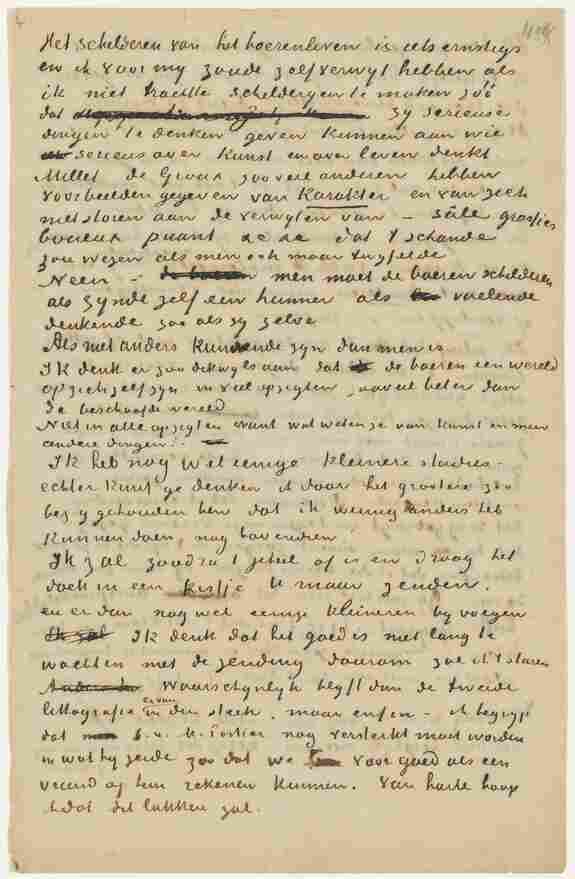 Het schilderen van het boerenleven is iets ernstigs
en ik voor my zoude zelfverwyt hebben als
ik niet trachtte schilderyen te maken zóó
dat zy serieuse
dingen te denken geven kunnen aan wie
serieus over kunst en over leven denkt
Millet de Groux, zooveel anderen hebben
voorbeelden gegeven van Karakter en van zich
niet storen aan de verwyten van – sâle, grossier
boueux puant &c &c dat 't schande
zou wezen als men ook maar twyfelde
Neen – men moet de boeren schilderen
als zynde zelf een hunner als voelende
denkende zoo als zy zelve
Als niet anders kunnende zyn dan men is.
Ik denk er zoo dikwyls aan dat de boeren een wereld
op zich zelf zyn in veel opzigten, zooveel beter dan
de beschaafde wereld
Niet in alle opzigten want wat weten ze van kunst en meer
andere dingen.
Ik heb nog wel eenige kleinere studies –
echter kunt ge denken ik door het grootere zoo
bezig gehouden ben dat ik weinig anders heb
kunnen doen, nog bovendien
Ik zal zoodra 't geheel af is en droog het
doek in een kistje U maar zenden.
en er dan nog wel eenige kleineren by voegen
Ik zal Ik denk dat het goed is niet lang te
wachten met de zending daarom zal ik 't sturen
waarschynlyk blyft dan de tweede
lithografie er van in den steek. maar enfin – ik begryp
dat b.v. M. Portier nog versterkt moet worden
in wat hy zeide zoo dat we voor goed als een
vriend op hem rekenen kunnen. Van harte hoop
ik dat dit lukken zal.